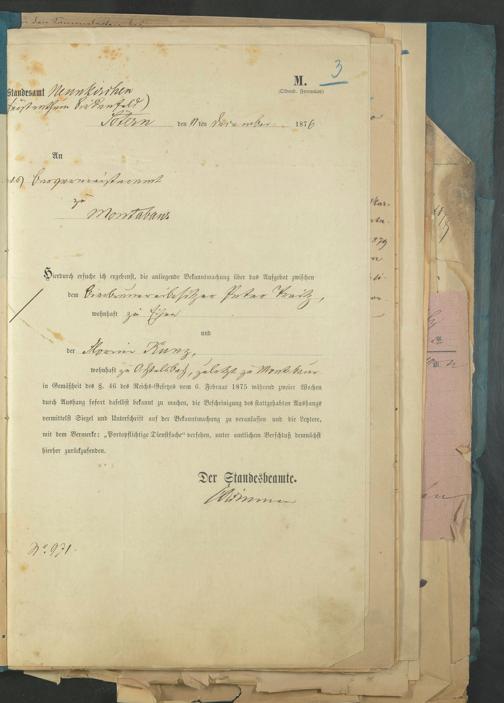 M.
3
Standesamt Neunkirchen
(Fürstenthum Birkenfeld)
Sötern den 11ten Dezember 1876
An
das Bürgermeisteramt
zu
Montabaur
Hierdurch ersuche ich ergebenst, die anliegende Bekanntmachung über das Aufgebot zwischen
dem Bierbrauereibesitzer Peter
wohnhaft zu Eisen
und
der Maria Kunz,
wohnhaft zu zuletzt zu Montabaur
in Gemäßheit des §. 46 des Reichs-Gesetzes vom 6. Februar 1875 während zweier Wochen
durch Aushang sofort daselbst bekannt zu machen, die Bescheinigung des stattgehabten Aushangs
vermittelst Siegel und Unterschrift auf der Bekanntmachung zu veranlassen und die Letztere,
mit dem Vermerke: „Portopflichtige Dienstsache“ versehen, unter amtlichem Verschluß demnächst
hierher zurückzusenden.
Der Standesbeamte.
No. 971.